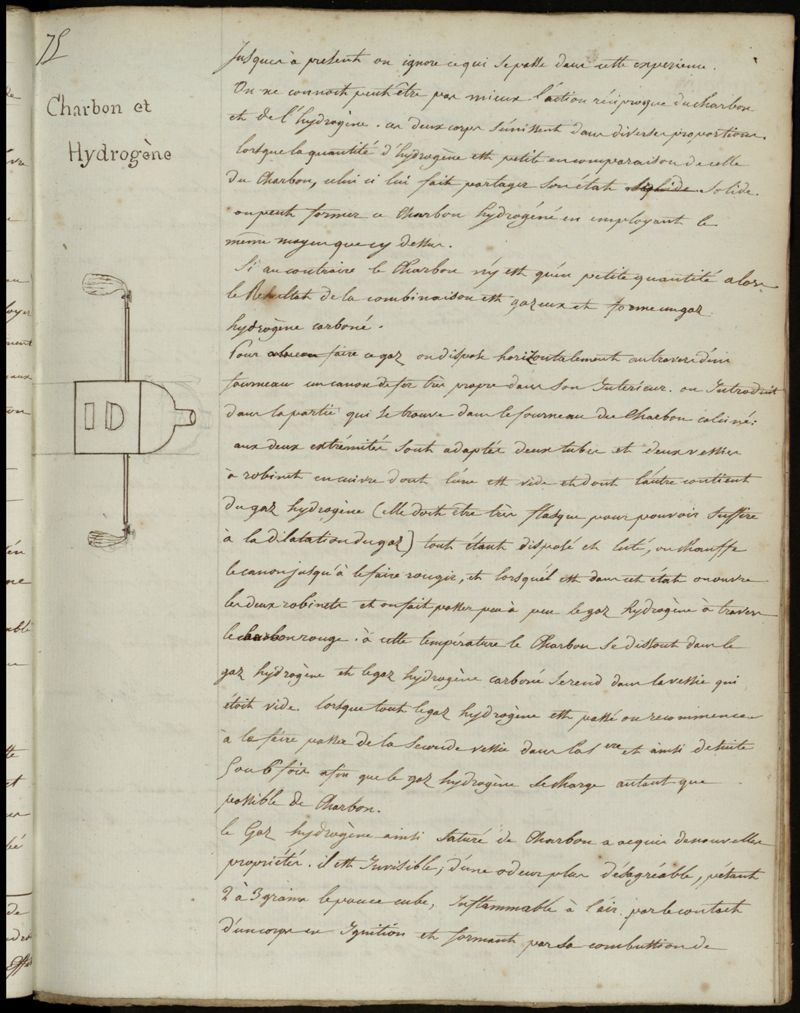 75
Charbon et
Hydrogène
Jusques à présent on ignore ce qui se passe dans cette experience.
On ne connoit peut être pas mieux l'action réciproque du charbon
et de l'hydrogène. ces deux corps s'unissent dans diverses proportions.
lorsque la quantité d'hydrogène est petite en comparaison de celle
du Charbon, celui ci lui fait partager son état solide.
on peut former ce Charbon hydrogéné en employant le
même moyen que cy dessus.
Si au contraire le Charbon n'y est qu'en petite quantité alors
le Résultat de la combinaison est gazeux et forme un gaz
hydrogène carboné.
Pour faire ce gaz on dispose horizontalement au travers d'un
fourneau un canon de fer très propre dans son Interieur. on Introduit
dans la partie qui se trouve dans le fourneau du Charbon calciné:
aux deux extrémités sont adaptés deux tubes et deux vessies
à robinet en cuivre dont l'une est vide et dont l'autre contient
du gaz hydrogène (elle doit être très flasque pour pouvoir suffire
à la dilatation du gaz) tout étant disposé et luté, on chauffe
le canon jusqu'à le faire rougir, et lorsqu'il est dans cet état on ouvre
les deux robinets et on fait passer peu à peu le gaz hydrogène à travers
le charbon rouge. à cette température le Charbon se dissout dans le
gaz hydrogène et le gaz hydrogène carboné se rend dans la vessie qui
étoit vide. lorsque tout le gaz hydrogène est passé on recommence
à le faire passer de la seconde vessie dans la 1ere et ainsi de suite
5 ou 6 fois afin que le gaz hydrogène se charge autant que
possible de Charbon.
le Gaz hydrogène ainsi saturé de Charbon a acquis de nouvelles
propriétés. il est Invisible, d'une odeur plus désagréable, pésant
2 à 3 grains le pouce cube, Inflammable à l'air par le contact
d'un corps en Ignition et formant par sa combustion de